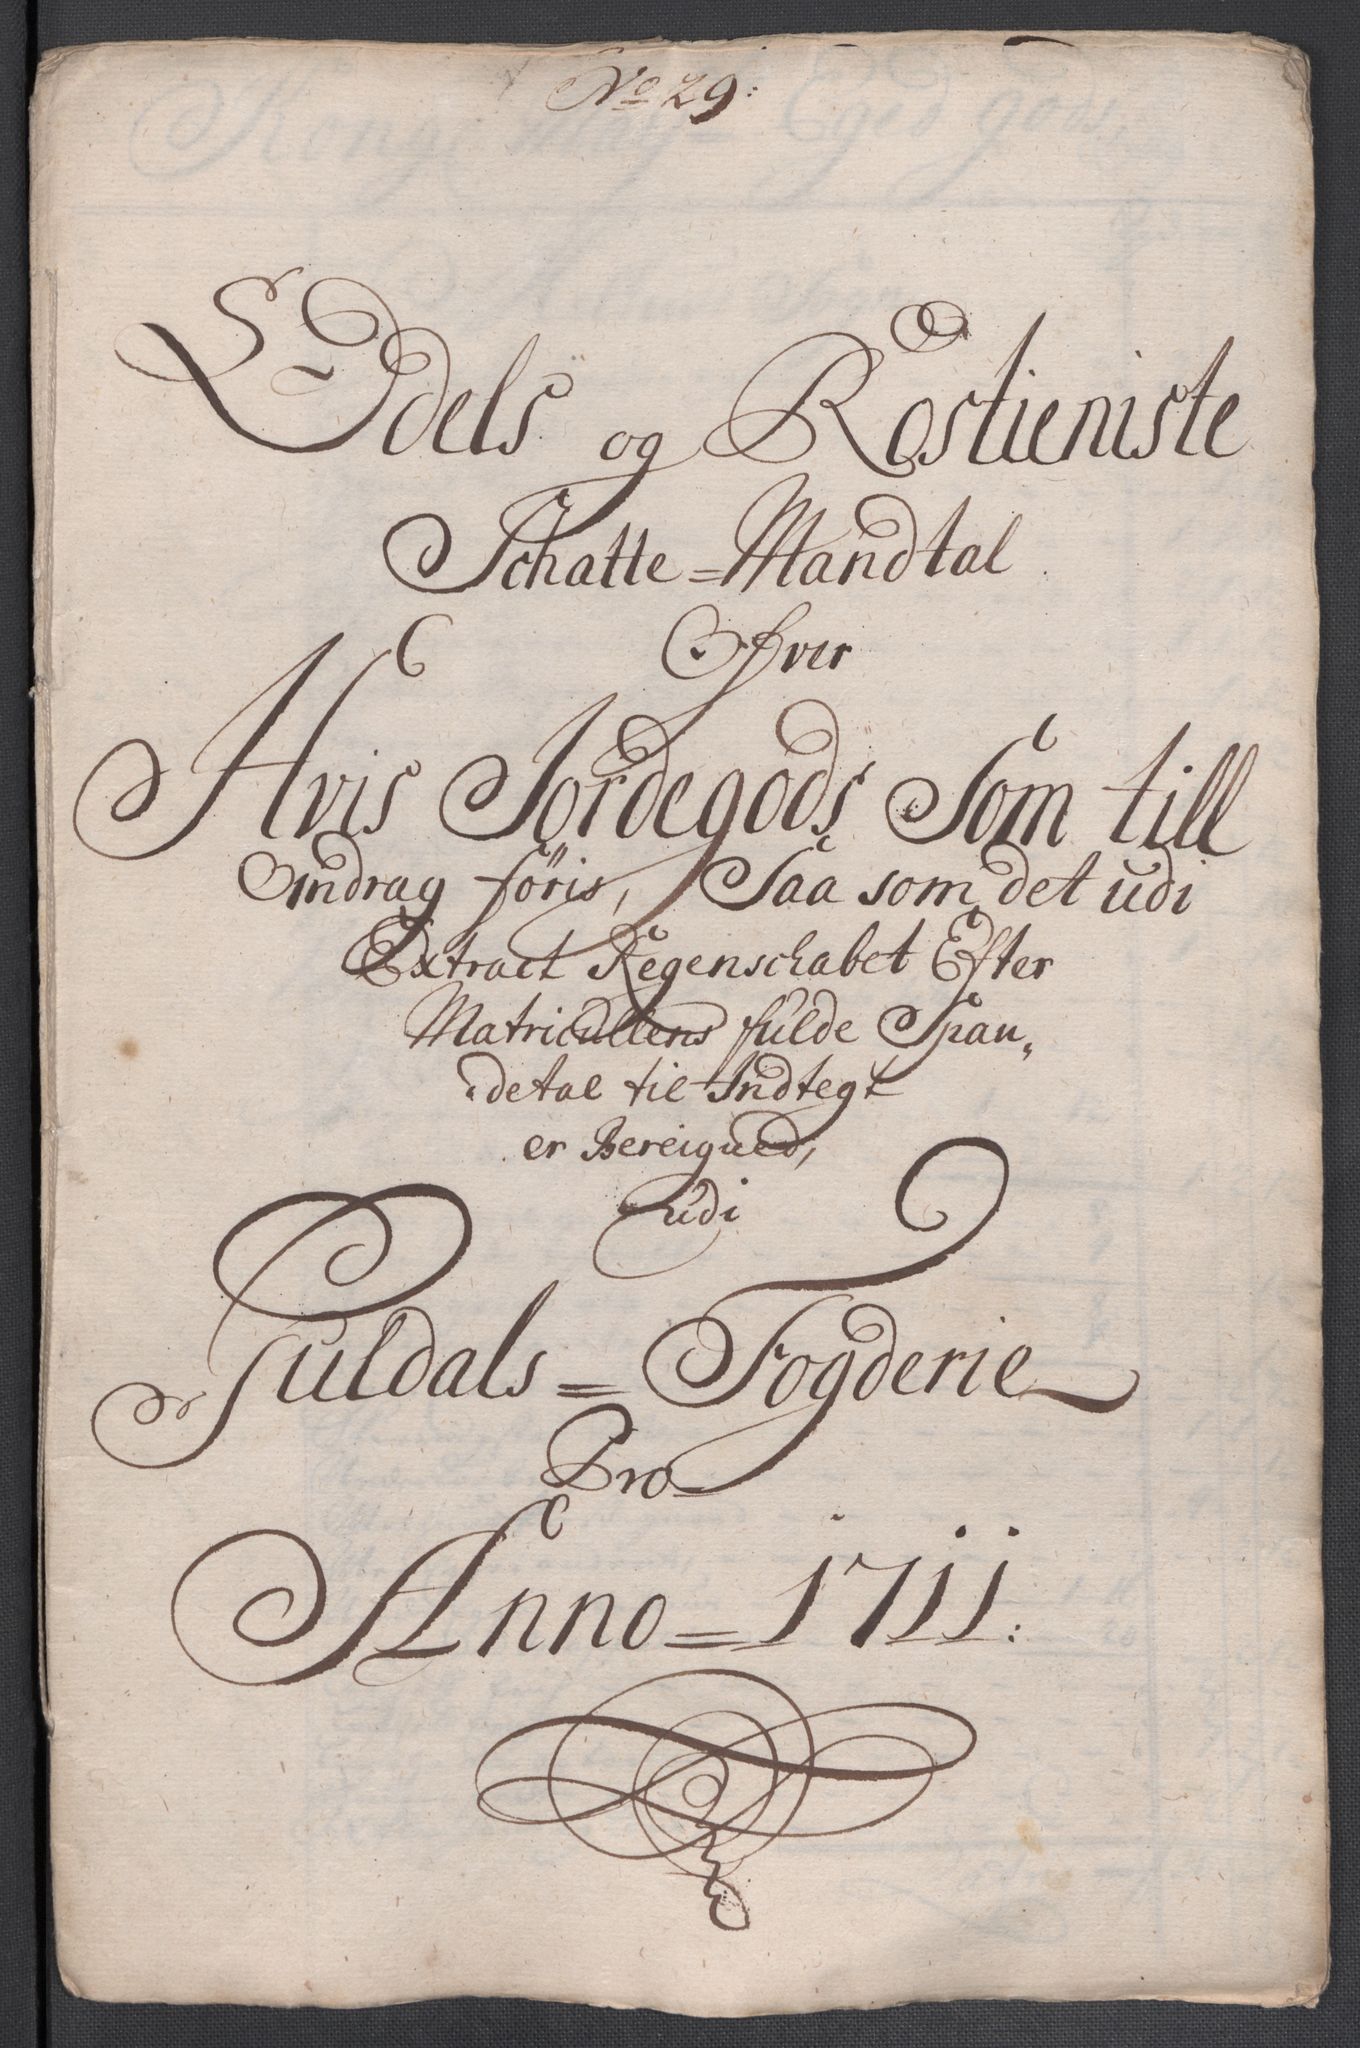 No 29:
Odels og Rostieniste
Schatte=Mandtal
Ofver
Hvis Jordegods Som till
Omdrag føris, Saa som det udi
Extract Regenschabet Efter
Matricullens fulde Span„
„detal til Indtegt
er Bereigned,
udi
Guldals=Fogderie
Pro
Anno=1711: